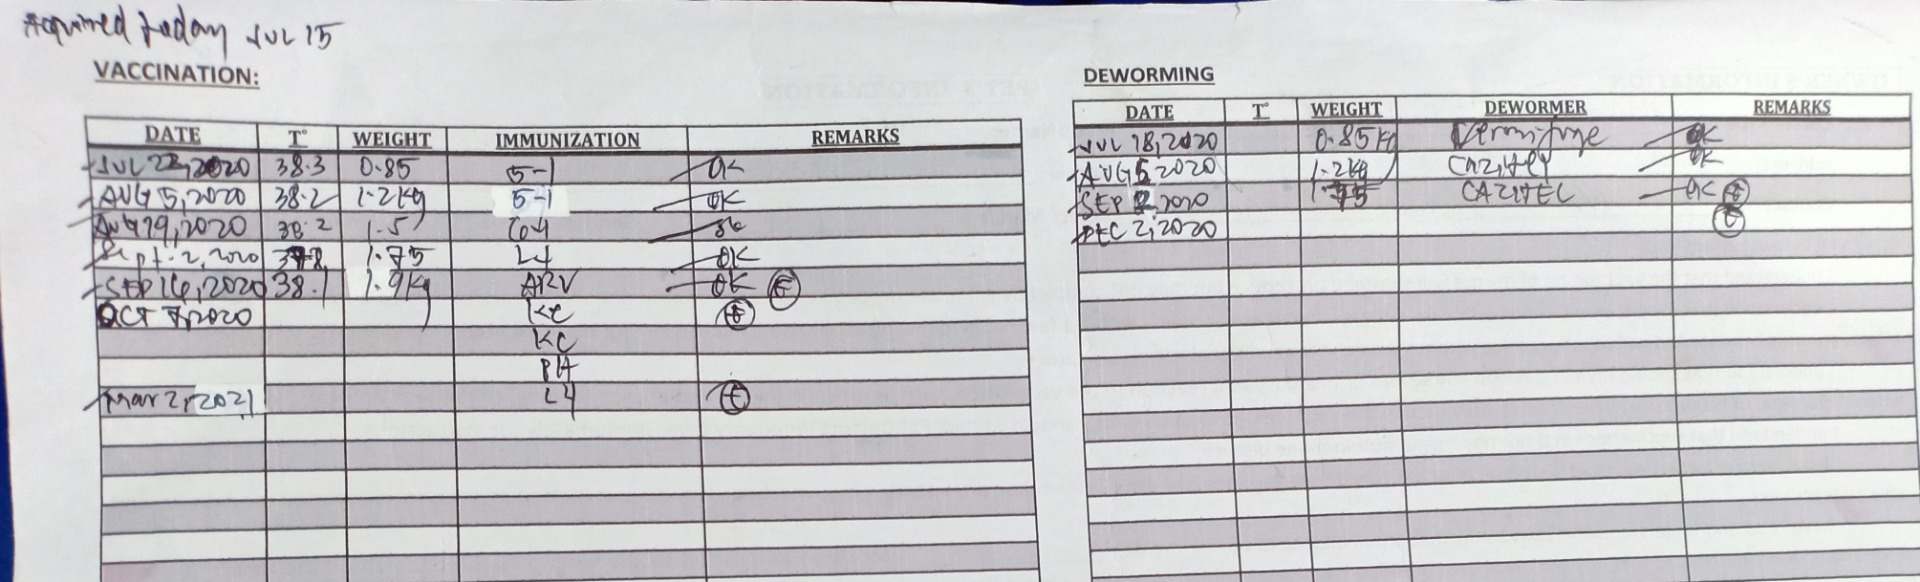 Acquired today JUL 15
VACCINATION:
DATE T° WEIGHT IMMUNIZATION REMARKS
JUL 22, 2020 38.3 0.85 5-1 OK
AUG 5, 2020 38.2 1.2kg 5-1 OK
AUG 19, 2020 38.2 1.5 OK
Sept. 2, 2020 37.8 1.75 L4 OK
SEP 16, 2020 38.1 1.9kg ARV OK
OCT 7, 2020 KC
KC
Mar 2, 2021 L4
DEWORMING
DATE T° WEIGHT DEWORMER REMARKS
JUL 18, 2020 0.85kg OK
AUG 5 2020 1.2kg CAZITEL OK
SEP 2, 2020 1.75 CAZITEL OK
DEC 2, 2020